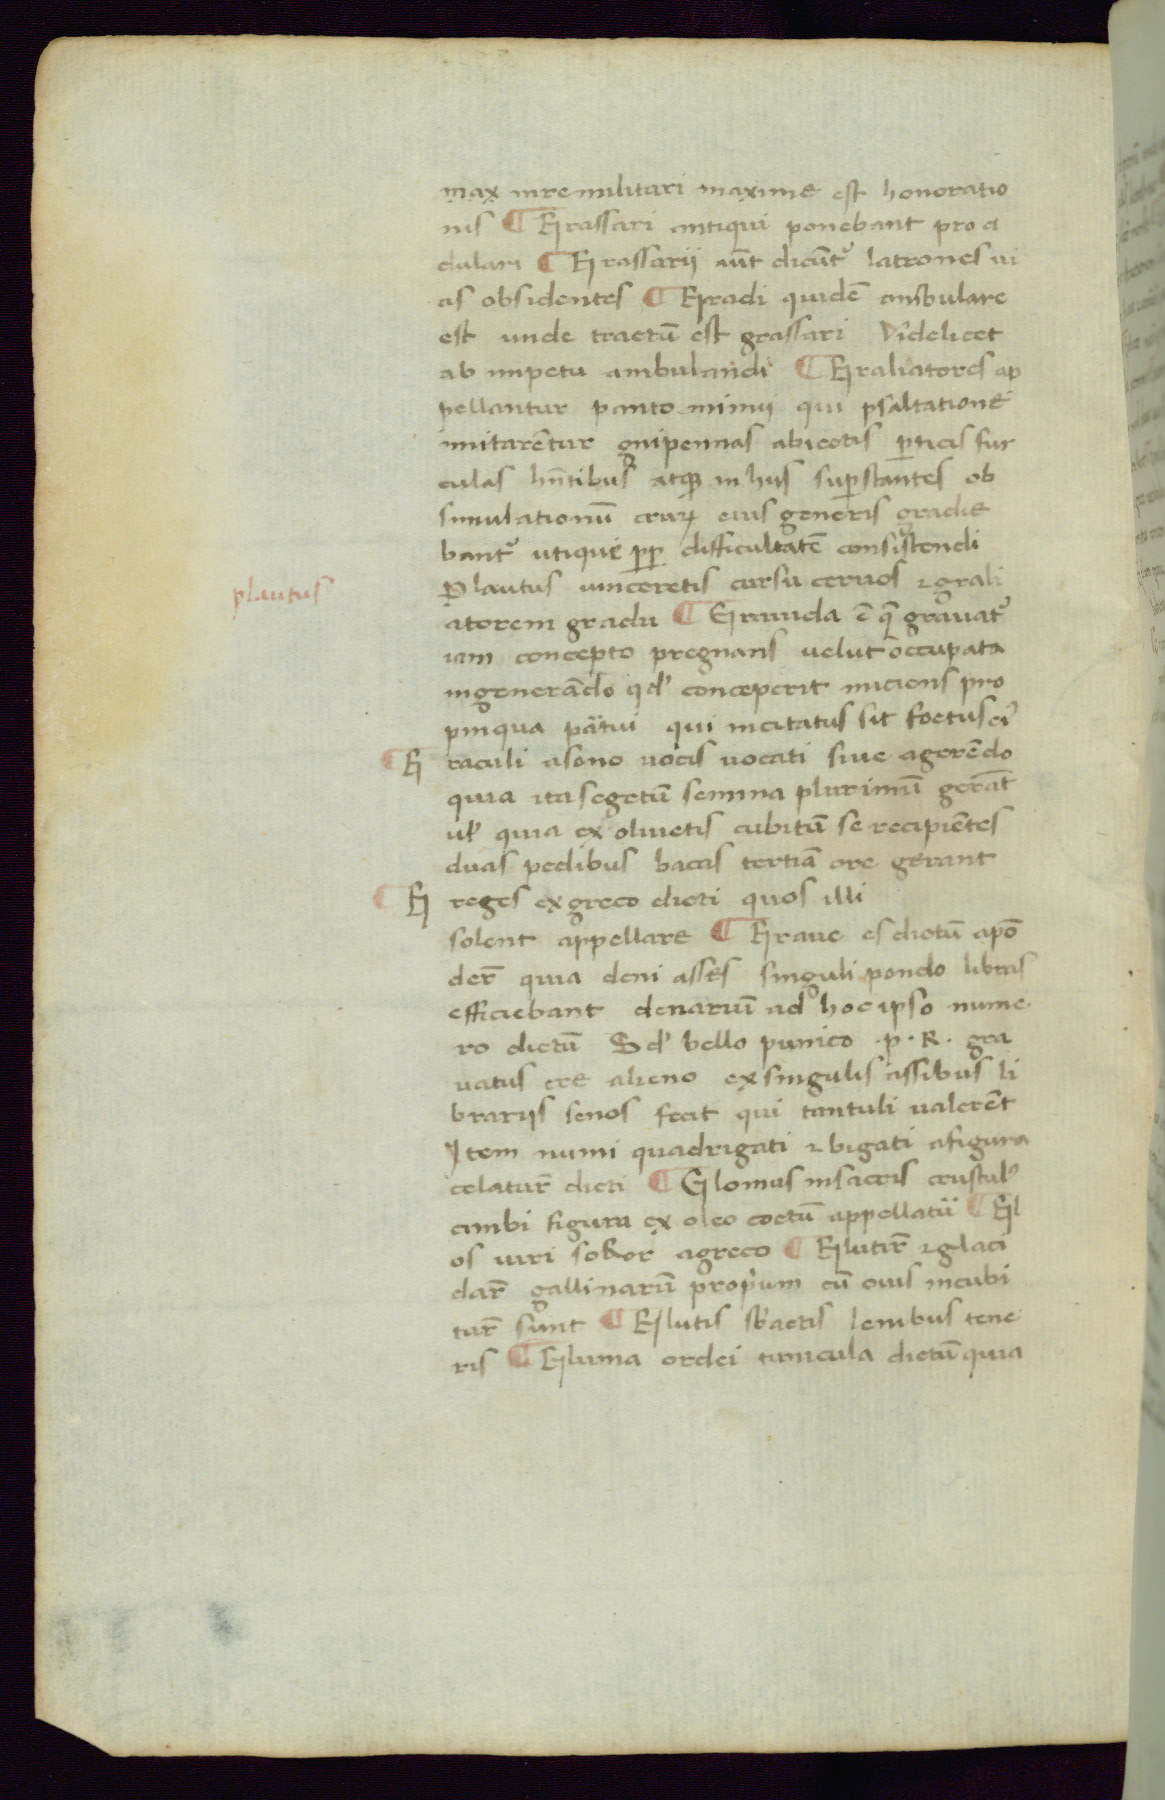 max inre militari maxime est honoratio
nis ¶ Grassari antiqui ponebant pro a
dulari ¶ Grassarij aũt dicũtᷣ latrones ui
as obsidentes ¶ Gradi quidẽ ambulare
est unde tractũ est grassari Videlicet
ab impetu ambulandi ¶ Graliatores ap
pellantur panto mimij qui psaltatione
imitarẽtur gnipennas abiectis ꝑticis fur
culas hñtibus atqꝫ in hijs suꝑstantes ob
simulationũ crurꝫ eius generis gradie
bantᷣ utique ꝓpꝑ difficultatẽ consistendi
plautus
Plautus uinceretis cursu ceruos ⁊ grali
atorem gradu ¶ Grauida ẽ q̃ grauatᷣ
iam concepto pregnans uelut occupata
ingenerãdo qd' conceperit inciens pro
pinqua pãtui qui incitatus sit foetus eiᷣ
¶ G raculi asono uocis uocati siue agerẽdo
quia ita segetũ semina plurimũ gerãt
ul' quia ex oliuetis cubitũ se recipiẽtes
duas pedibus bacas tertiã ore gerant
¶ G reges ex greco dicti quos illi
solent appellare ¶ Graue es dictũ apõ
der̃ quia deni asses singuli pondo libras
efficiebant denariũ ad hoc ipso nume
ro dictũ Sd' bello punico ·p·R· gra
uatus ere alieno ex singulis assibus li
brarijs senos fecit qui tantuli ualerẽt
Item numi quadrigati ⁊ bigati afigura
celatur̃ dicti ¶ Glomus insacris crustul'
cimbi figura ex oleo coctũ appellatũ ¶ Gl
os uiri soror agreco ¶ Glutir̃ ⁊ glaci
dar̃ gallinarũ proprium cũ ouis incubi
tur̃ sunt ¶ Glutis sb'actis lenibus tene
ris ¶ Gluma ordei tunicula dictũ quia